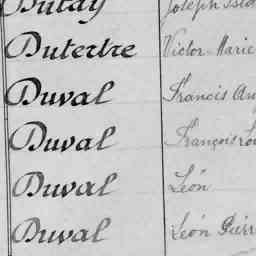 Dutay Joseph
Dutertre Victor Marie
Duval Francis
Duval François
Duval Léon
Duval Léon Pierr